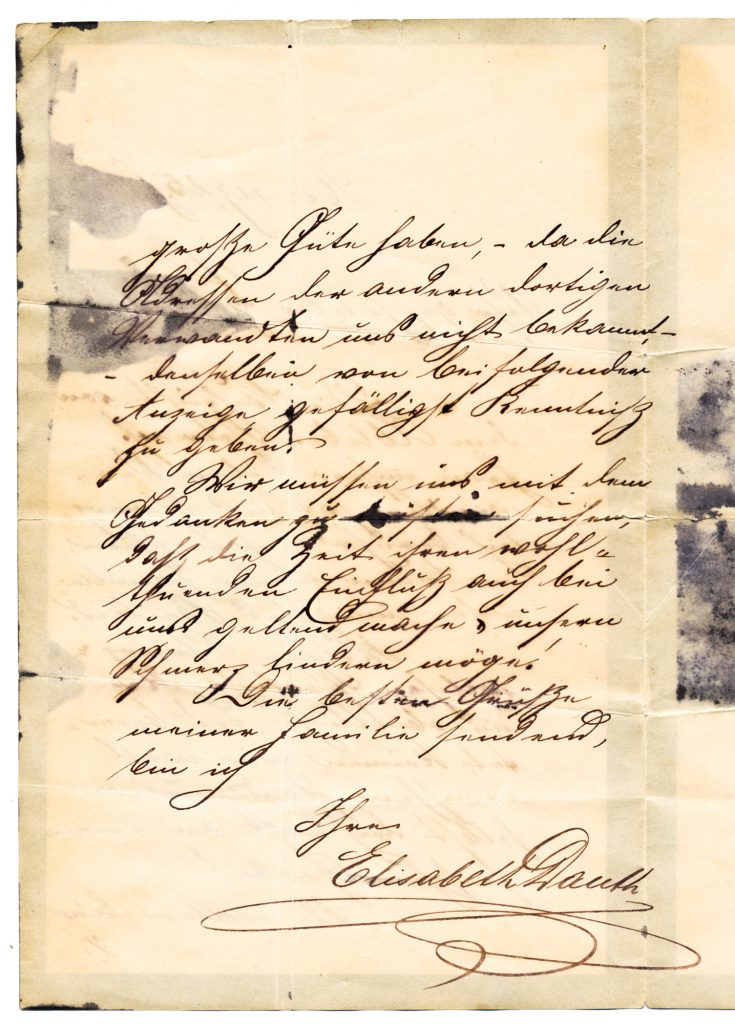 große Güte haben, - da die
Adressen der andern dortigen
Verwandten uns nicht bekannt, -
- denselben von beifolgender
Anzeige gefälligst Kenntniß
zu geben.
Wir müssen uns mit dem
Gedanken zu trösten suchen,
daß die Zeit ihren wohl=
thuenden Einfluß auch bei
uns geltend mache, unsern
Schmerz lindern möge.
Die besten Grüße
meiner Familie sendend,
bin ich
Ihre
Elisabeth Dauth